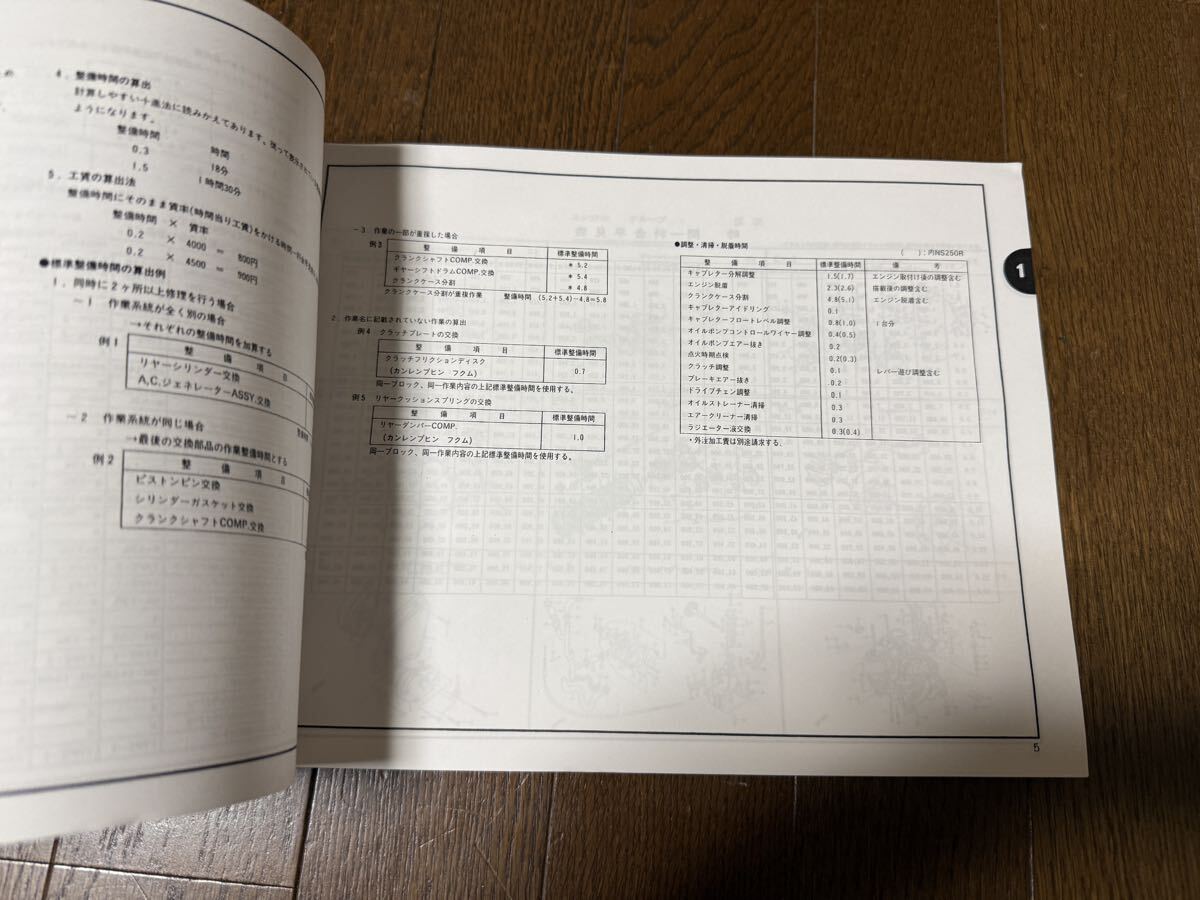 4．整備時間の算出
計算しやすい十進法に読みかえてあります。従って表示されている
ようになります。
整備時間 時間
0.3 18分
1.5 1時間30分
5．工賃の算出法
整備時間にそのまま賃率(時間当り工賃)をかける
整備時間 × 賃率
0.2 × 4000 ＝ 800円
0.2 × 4500 ＝ 900円
●標準整備時間の算出例
1．同時に2ヶ所以上修理を行う場合
－1 作業系統が全く別の場合
→それぞれの整備時間を加算する
例1
整備項目
リヤーシリンダー交換
A,C,ジェネレーターASSY.交換
－2 作業系統が同じ場合
→最後の交換部品の作業整備時間とする
例2
整備項目
ピストンピン交換
シリンダーガスケット交換
クランクシャフトCOMP.交換
－3．作業の一部が重複した場合
例3
整備項目 標準整備時間
クランクシャフトCOMP.交換 ＊5.2
ギヤーシフトドラムCOMP.交換 ＊5.4
クランクケース分割 ＊4.8
クランクケース分割が重複作業 整備時間 (5.2＋5.4)－4.8＝5.8
2．作業名に記載されていない作業の算出
例4 クラッチプレートの交換
整備項目 標準整備時間
クラッチフリクションディスク
(カンレンブヒン フクム) 0.7
同一ブロック、同一作業内容の上記標準整備時間を使用する。
例5 リヤークッションスプリングの交換
整備項目 標準整備時間
リヤーダンパーCOMP.
(カンレンブヒン フクム) 1.0
同一ブロック、同一作業内容の上記標準整備時間を使用する。
●調整・清掃・脱着時間
( )：内NS250R
整備項目 標準整備時間 備考
キャブレター分解調整 1.5(1.7) エンジン取付け後の調整含む
エンジン脱着 2.3(2.6) 搭載後の調整含む
クランクケース分割 4.8(5.1) エンジン脱着含む
キャブレターアイドリング 0.1
キャブレターフロートレベル調整 0.8(1.0) 1台分
オイルポンプコントロールワイヤー調整 0.4(0.5)
オイルポンプエアー抜き 0.2
点火時期点検 0.2(0.3)
クラッチ調整 0.1 レバー遊び調整含む
ブレーキエアー抜き 0.2
ドライブチェン調整 0.1
オイルストレーナー清掃 0.3
エアークリーナー清掃 0.3
ラジエーター液交換 0.3(0.4)
・外注加工費は別途請求する。
1
5